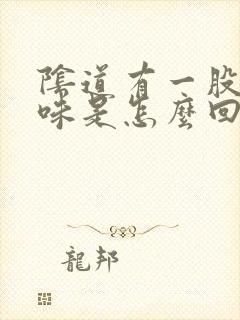 陰道有一股
味是怎麼回
龍邦